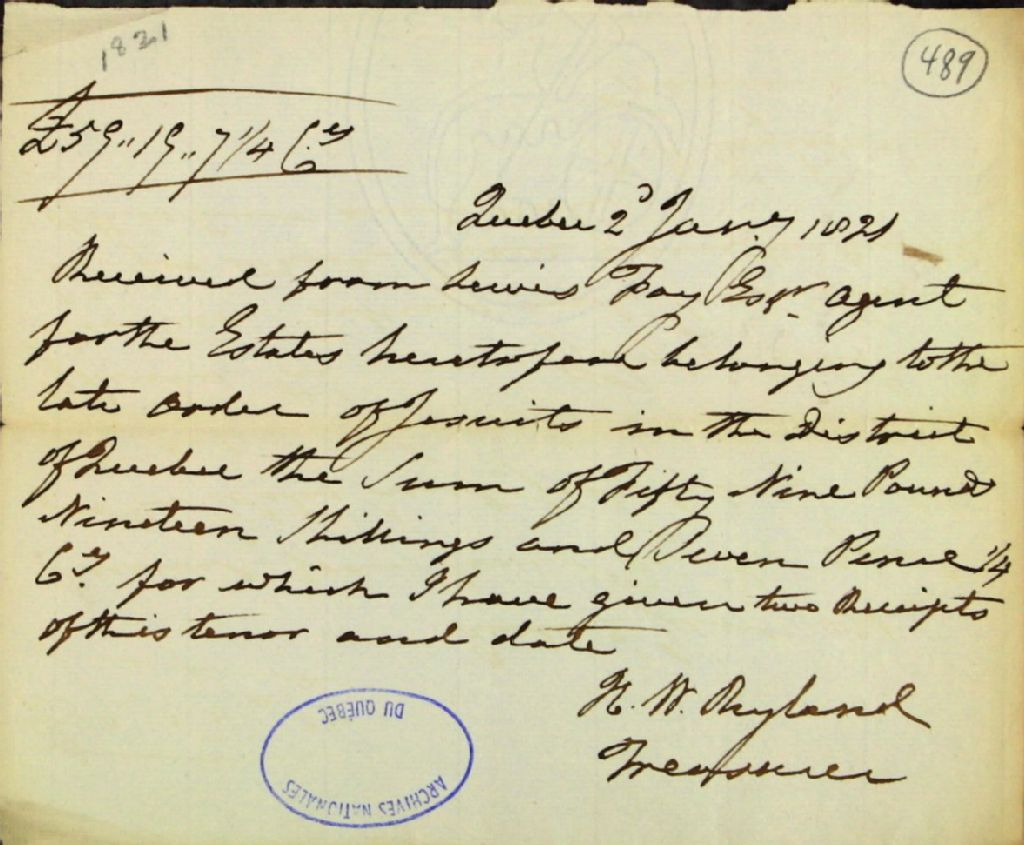 1821
489
£59,,19,,7 1/4 Cy
Quebec 2d Jany 1821
Received from Lewis Foy Esqr. Agent
for the Estates heretofore belonging to the
late order of Jesuits in the District
of Quebec the Sum of Fifty Nine Pounds
Nineteen Shillings and Seven Pence 1/4
Cy. for which I have given two Receipts
of this tenor and date
H. W. Ryland
Treasurer
ARCHIVES NATIONALES
DU QUÉBEC